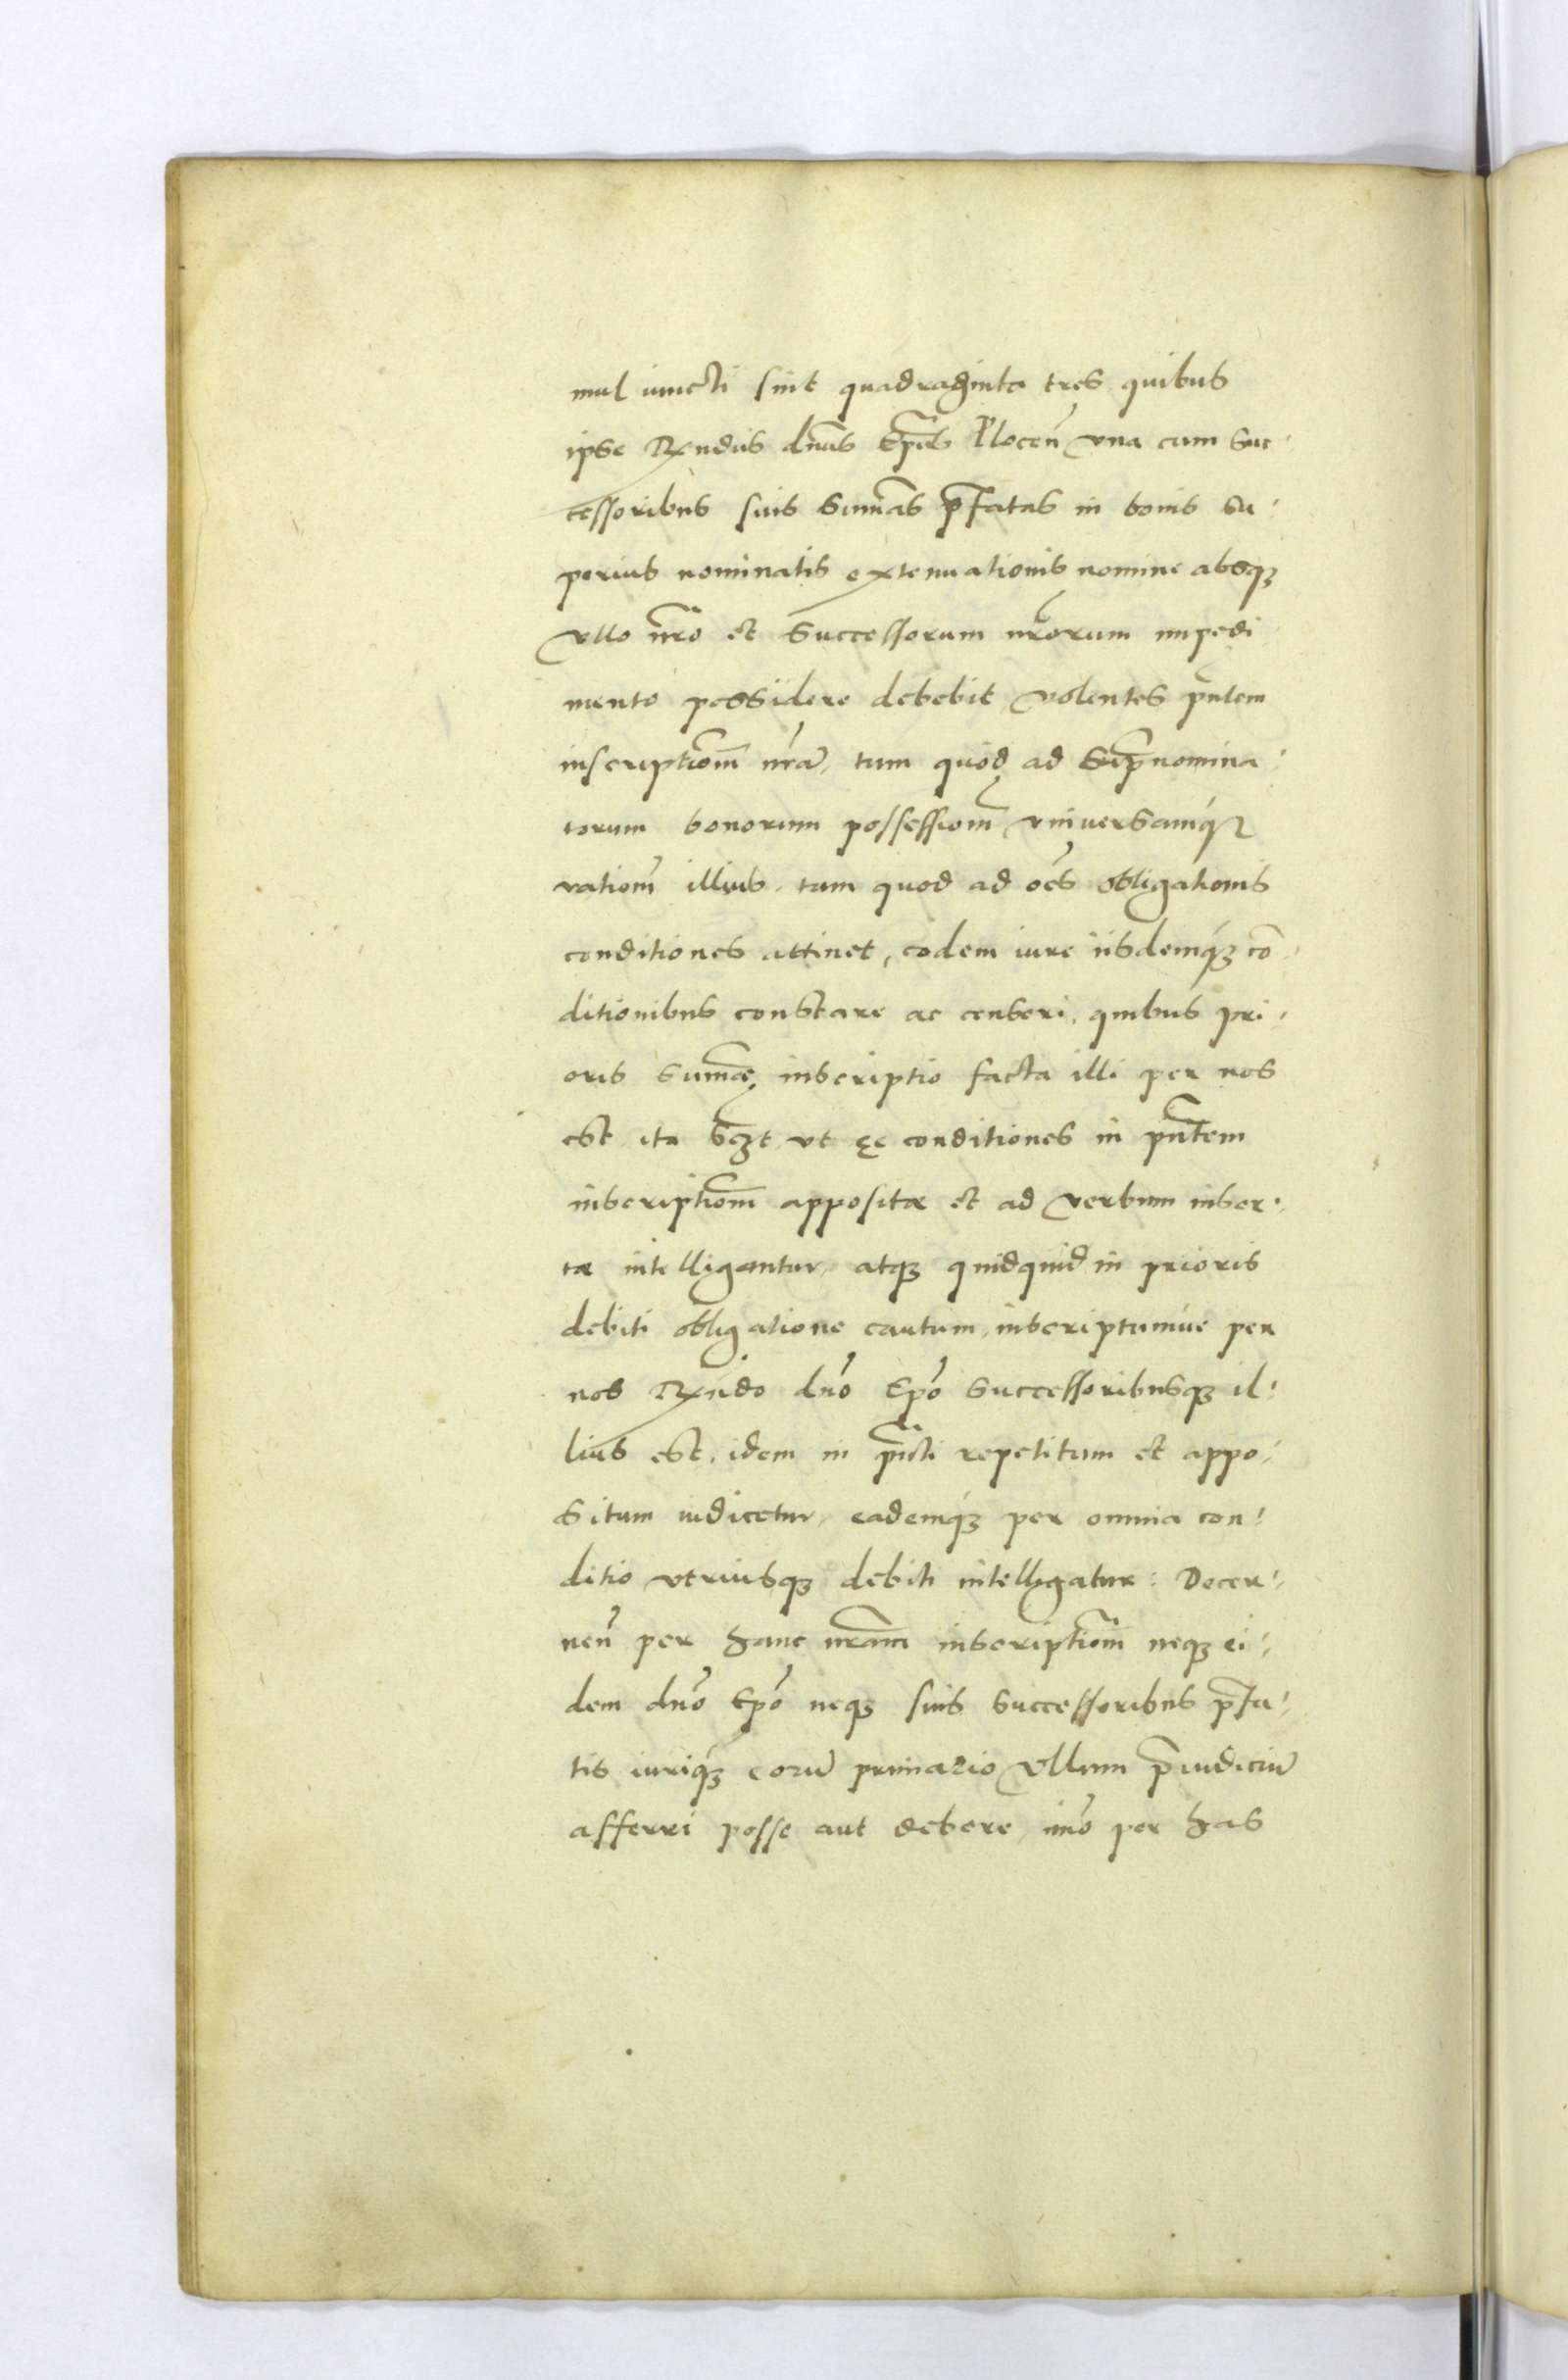 mul iuncti sint quadraginta tres quibus
ipse Rx̃ndus dñus Ep̃us Plocen̄ vna cum suc-
cessoribus suis sum̃as p̃fatas in bonis su-
perius nominatis extenuationis nomine absq̃
vllo nr̃o et successorum nr̃orum impedi
mento possidere debebit, volentes pn̄tem
inscriptiom̄ nr̃ã, tum quod ad sup̃nomina-
torum bonorum possessiom̄ vniuersamq̃
ratiom̄ illius, tum quod ad oẽs obligationis
conditiones attinet, eodem iure iisdemq̃ cõ-
ditionibus constare ac censeri, quibus pri-
oris sum̃ę inscriptio facta illi per nos
est ita sczt, vt eę conditiones in pn̄tem
inscriptiom̄ appositæ et ad verbum inser-
tæ intelligantur, atq̃ quidquid in prioris
debiti obligatione cautum, inscriptumue per
nos Rx̃ndo dño Ep̃o successoribusq̃ il-
lius est, idem in pñti repetitum et appo-
situm iudicetur, eademq̃ per omnia con-
ditio vtriusq̃ debiti intelligatur: Decer-
nen̄ per hanc nr̃am inscriptiom̄ neq̃ ei-
dem dño Ep̃o neq̃ suis successoribus p̃fa-
tis iuriq̃ eorũ primario vllum p̃iudiciũ
afferri posse aut debere, im̃o per has